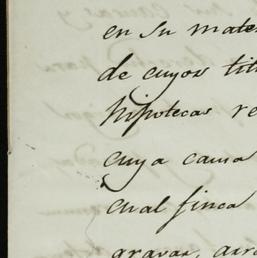 en su mate
de cuyos tit
hipotecas re
cuya causa
cual finca
gravar,